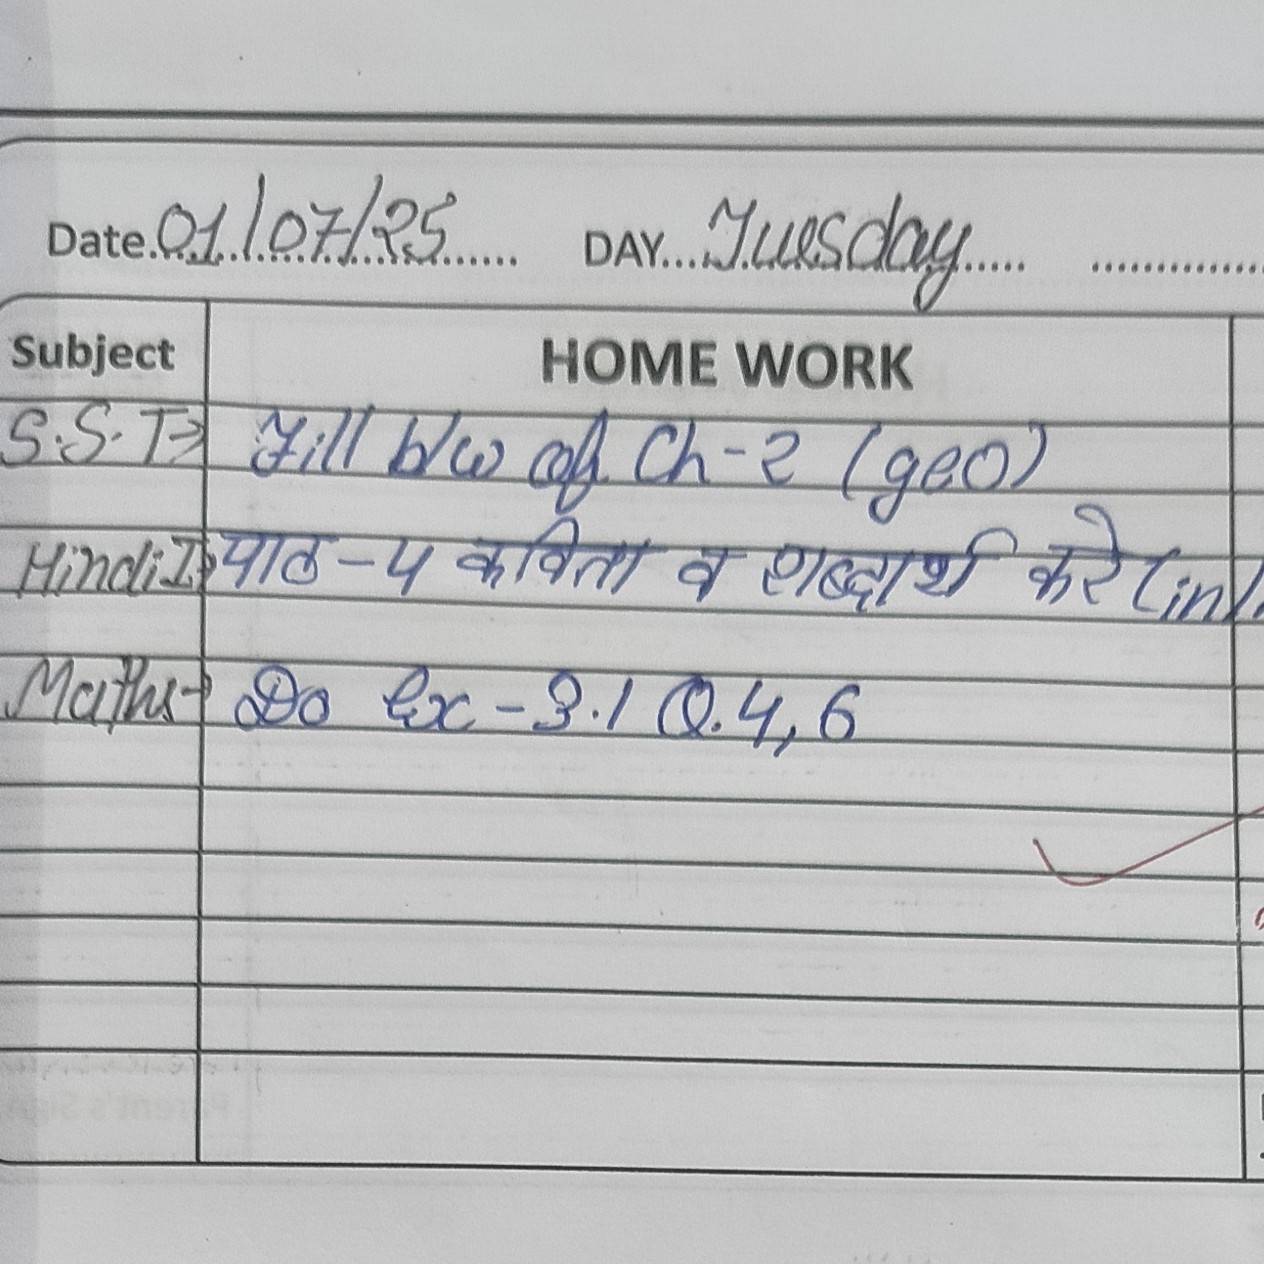 Date. 01/07/25 ...... DAY... Tuesday ..... ..............
Subject HOME WORK
S.S.T→ Fill b/w of Ch-2 (geo)
Hindi I→ पाठ-4 कविता व शब्दार्थ करे (in
Maths→ Do Ex-3.1 Q.4,6